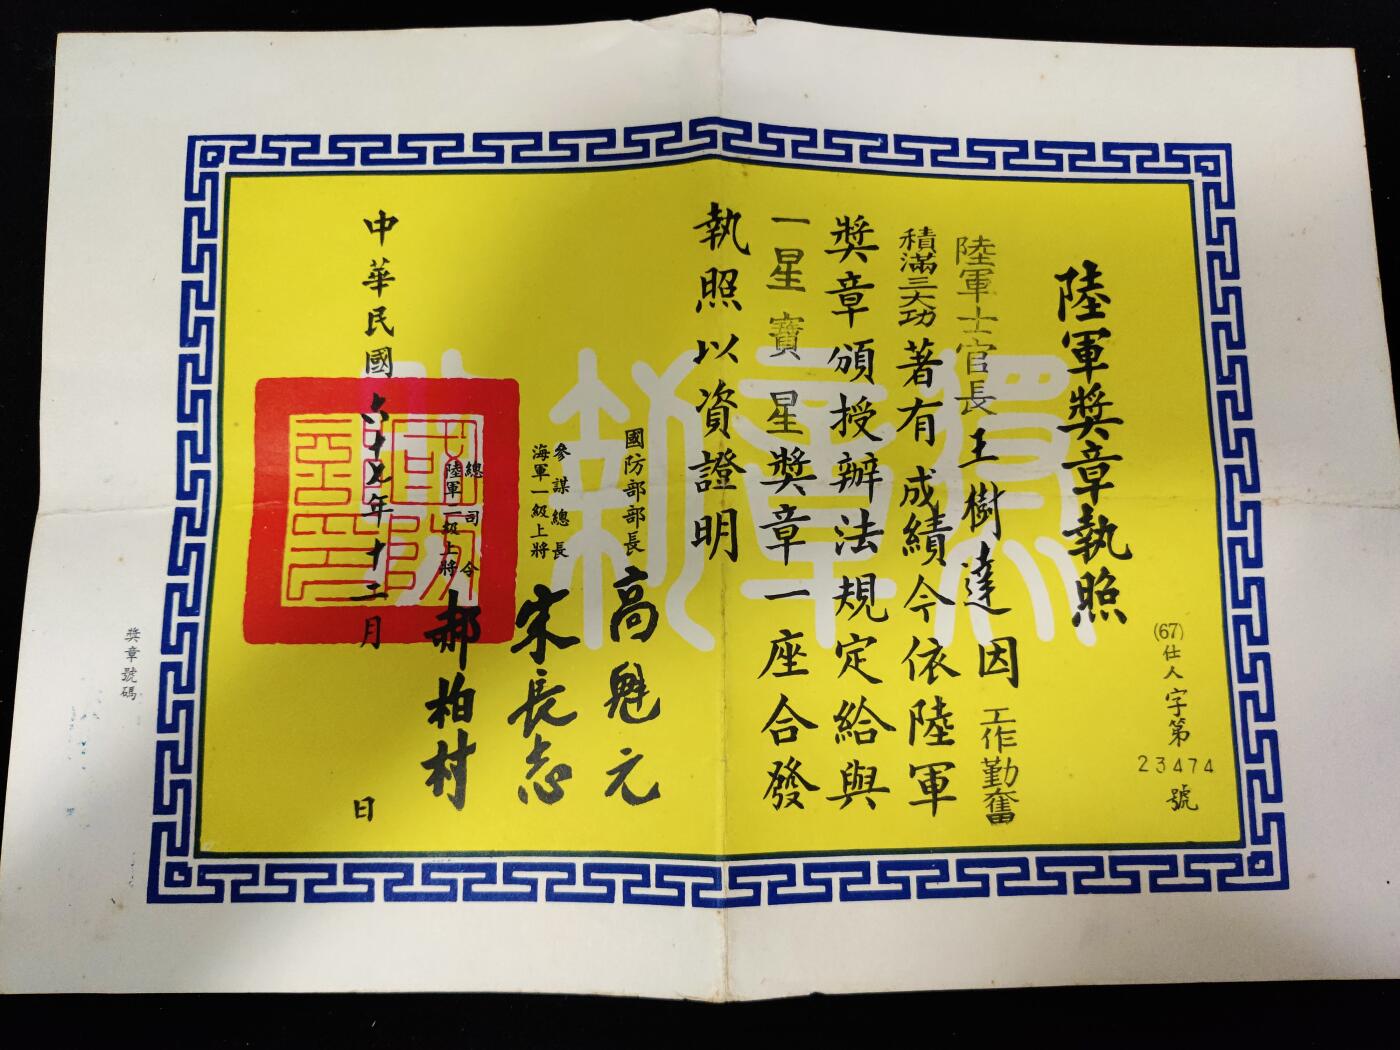 陸軍獎章執照
(67)仕人字第
23474
號
陸軍士官長王樹達因工作勤奮
積滿三大功著有成績今依陸軍
獎章頒授辦法規定給與
一星寶星獎章一座合發
執照以資證明
國防部部長高魁元
參謀總長
海軍一級上將宋長志
總司令
陸軍二級上將郝柏村
中華民國六十七年十二月日
獎章號碼